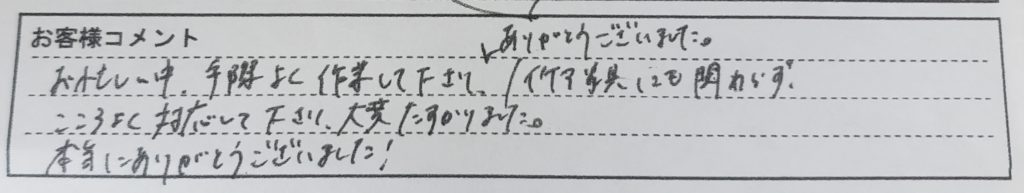 お客様コメント
ありがとうございました。
お忙しい中、手際よく作業して下さり、イケア家具にも関わらず、
こころよく対応して下さり、大変たすかりました。
本当にありがとうございました!